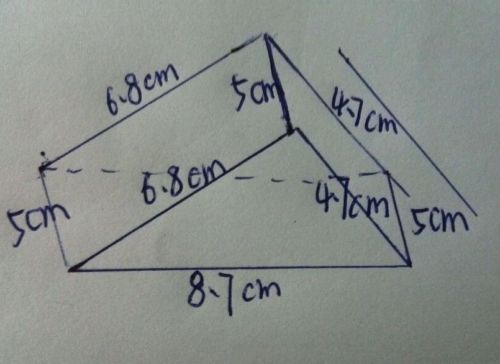 6.8cm
5cm
4.7cm
6.8cm
4.7cm
5cm
5cm
8.7cm